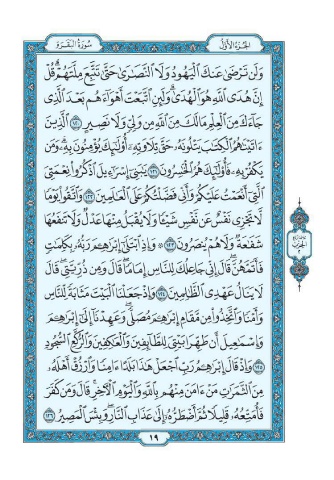 سُورَةُ البَقَرَةِ الجُزْءُ الأَوَّلُ
وَلَن تَرْضَىٰ عَنكَ ٱلْيَهُودُ وَلَا ٱلنَّصَٰرَىٰ حَتَّىٰ تَتَّبِعَ مِلَّتَهُمْ ۗ قُلْ
إِنَّ هُدَى ٱللَّهِ هُوَ ٱلْهُدَىٰ ۗ وَلَئِنِ ٱتَّبَعْتَ أَهْوَآءَهُم بَعْدَ ٱلَّذِى
جَآءَكَ مِنَ ٱلْعِلْمِ ۙ مَا لَكَ مِنَ ٱللَّهِ مِن وَلِىٍّ وَلَا نَصِيرٍ ١٢٠ ٱلَّذِينَ
ءَاتَيْنَٰهُمُ ٱلْكِتَٰبَ يَتْلُونَهُۥ حَقَّ تِلَاوَتِهِۦٓ أُو۟لَٰٓئِكَ يُؤْمِنُونَ بِهِۦ ۗ وَمَن
يَكْفُرْ بِهِۦ فَأُو۟لَٰٓئِكَ هُمُ ٱلْخَٰسِرُونَ ١٢١ يَٰبَنِىٓ إِسْرَٰٓءِيلَ ٱذْكُرُوا۟ نِعْمَتِىَ
ٱلَّتِىٓ أَنْعَمْتُ عَلَيْكُمْ وَأَنِّى فَضَّلْتُكُمْ عَلَى ٱلْعَٰلَمِينَ ١٢٢ وَٱتَّقُوا۟ يَوْمًا
لَّا تَجْزِى نَفْسٌ عَن نَّفْسٍ شَيْـًٔا وَلَا يُقْبَلُ مِنْهَا عَدْلٌ وَلَا تَنفَعُهَا
شَفَٰعَةٌ وَلَا هُمْ يُنصَرُونَ ١٢٣ ۞ وَإِذِ ٱبْتَلَىٰٓ إِبْرَٰهِـۧمَ رَبُّهُۥ بِكَلِمَٰتٍ
فَأَتَمَّهُنَّ ۖ قَالَ إِنِّى جَاعِلُكَ لِلنَّاسِ إِمَامًا ۖ قَالَ وَمِن ذُرِّيَّتِى ۖ قَالَ
لَا يَنَالُ عَهْدِى ٱلظَّٰلِمِينَ ١٢٤ وَإِذْ جَعَلْنَا ٱلْبَيْتَ مَثَابَةً لِّلنَّاسِ
وَأَمْنًا وَٱتَّخِذُوا۟ مِن مَّقَامِ إِبْرَٰهِـۧمَ مُصَلًّى ۖ وَعَهِدْنَآ إِلَىٰٓ إِبْرَٰهِـۧمَ
وَإِسْمَٰعِيلَ أَن طَهِّرَا بَيْتِىَ لِلطَّآئِفِينَ وَٱلْعَٰكِفِينَ وَٱلرُّكَّعِ ٱلسُّجُودِ
١٢٥ وَإِذْ قَالَ إِبْرَٰهِـۧمُ رَبِّ ٱجْعَلْ هَٰذَا بَلَدًا ءَامِنًا وَٱرْزُقْ أَهْلَهُۥ
مِنَ ٱلثَّمَرَٰتِ مَنْ ءَامَنَ مِنْهُم بِٱللَّهِ وَٱلْيَوْمِ ٱلْءَاخِرِ ۖ قَالَ وَمَن كَفَرَ
فَأُمَتِّعُهُۥ قَلِيلًا ثُمَّ أَضْطَرُّهُۥٓ إِلَىٰ عَذَابِ ٱلنَّارِ ۖ وَبِئْسَ ٱلْمَصِيرُ ١٢٦
١٩